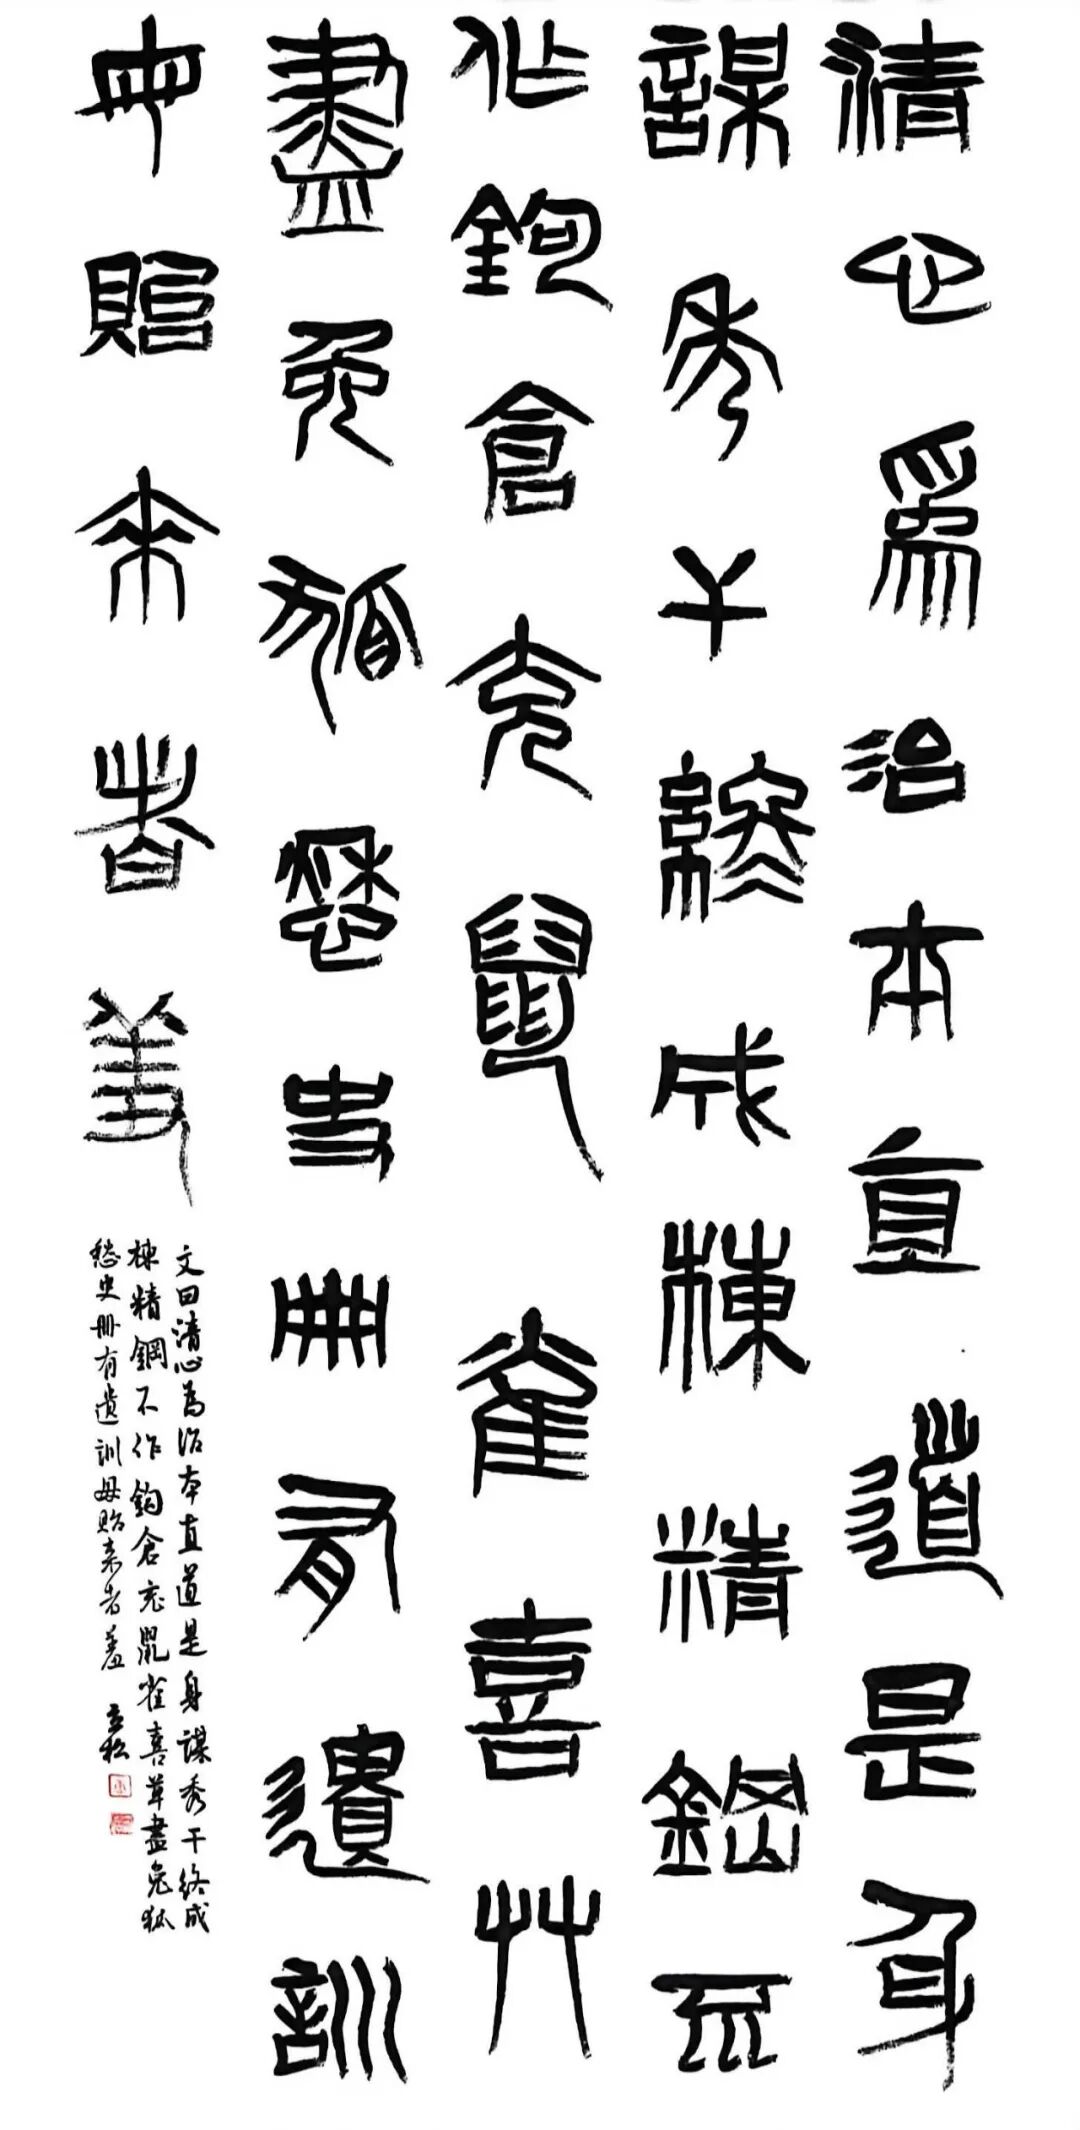 清心爲治本直道是身
謀秀干終成棟精鋼不
作鉤倉充鼠雀喜艸
盡兔狐愁史冊有遺訓
毋貽來者羞
文曰清心為治本直道是身謀秀干終成
棟精鋼不作鉤倉充鼠雀喜草盡兔狐
愁史册有遺訓毋貽来者羞